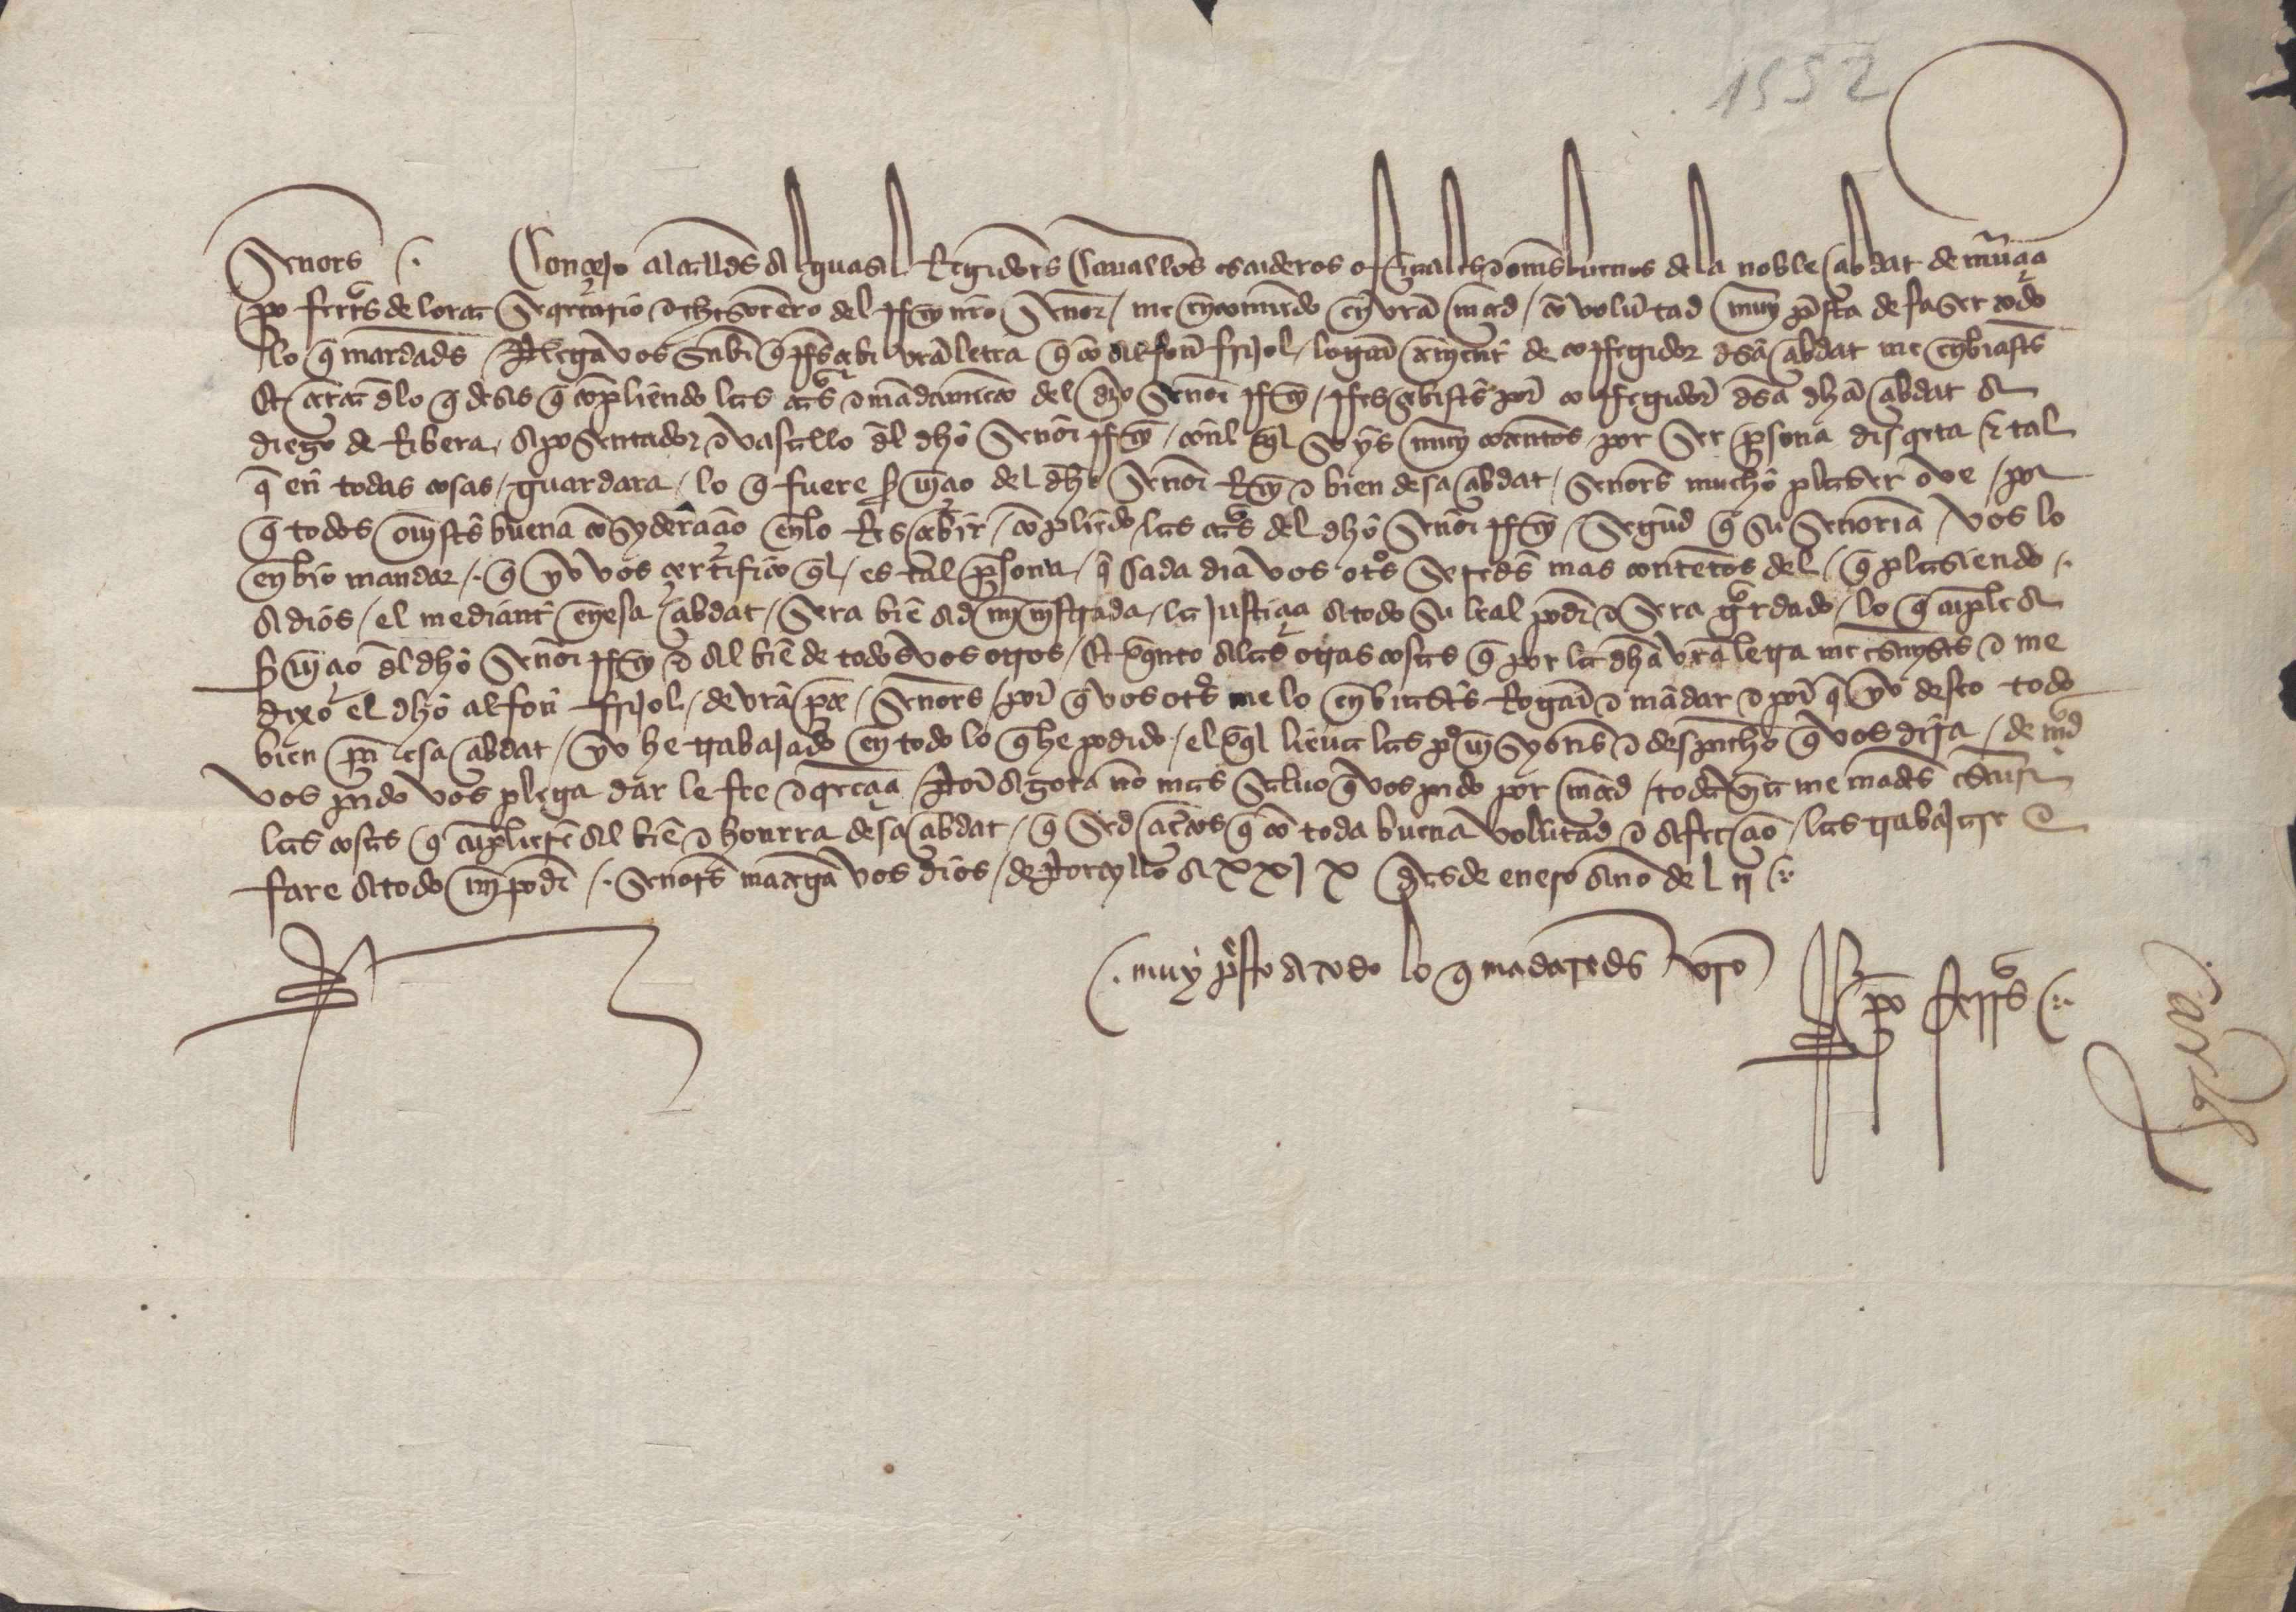 1552
Senores Conçejo alcalldes alguasil Regidores Caualleros escuderos ofiçiales e omes buenos de la noble çibdat de murçia
po ferrs de lorca Secretario e thesorero del Rey nro Senor / me encomiendo en vra merçed / con voluntad muy presta de faser todo
lo q mandardes / Plega vos saber q Resçebi vra letra q con alfon Frijol / logar teniente de corregidor desa çibdat me enbiastes
Et çerca de lo q desis q conpliendo las cartas e mandamiento del dicho Senor Rey / Resçebistes por corregidor desa dha çibdat a
diego de Ribera, aposentador e vasallo del dho Senor Rey / con el ql soys muy contentos por ser persona discreta & tal
q en todas cosas, guardara, lo q fuere seruiçio del dho Senor Rey e bien desa çibdat, Senores mucho plaser oue / por
q todos ouistes buena consyderaçion en lo Resçebir / conpliendo las cartas del dho Senor Rey / Segund q su Senoria vos lo
enbio mandar / q yo vos çertifico ql / es tal persona / q Cada dia vos otros seredes mas contentos del / q plasiendo
a dios / el mediante en esa çibdat / sera bien administrada / la justiçia a todo su leal poder e sera guardado / lo q cunple a
seruiçio del dho Senor Rey e al bien de todos vos otros / Et quanto a las otras cosas q por la dha vra letra me escriuistes e me
dixo el dho alfon Frijol / de vra parte / Senores / por q vos otros me lo enbiastes Rogar e mandar e por q yo desseo todo
bien para esa çibdat / yo he trabajado en todo lo q he podido / el ql lieua las prouisyones e despacho q vos dira / de merçed
vos pido vos plega dar le fee e creençia / Por agora no mas saluo q vos pido por merçed / toda via me mandes escriuir
las cosas q cunplieren al bien e honrra desa çibdat / q sed çiertos q con toda buena voluntad e afecçion / las trabajare e
fare a todo mi poder / Senores mantenga vos dios / de Portyllo a XXIX dias de enero ano de L II
muy presto a todo lo q mandaredes vro
po ferrs